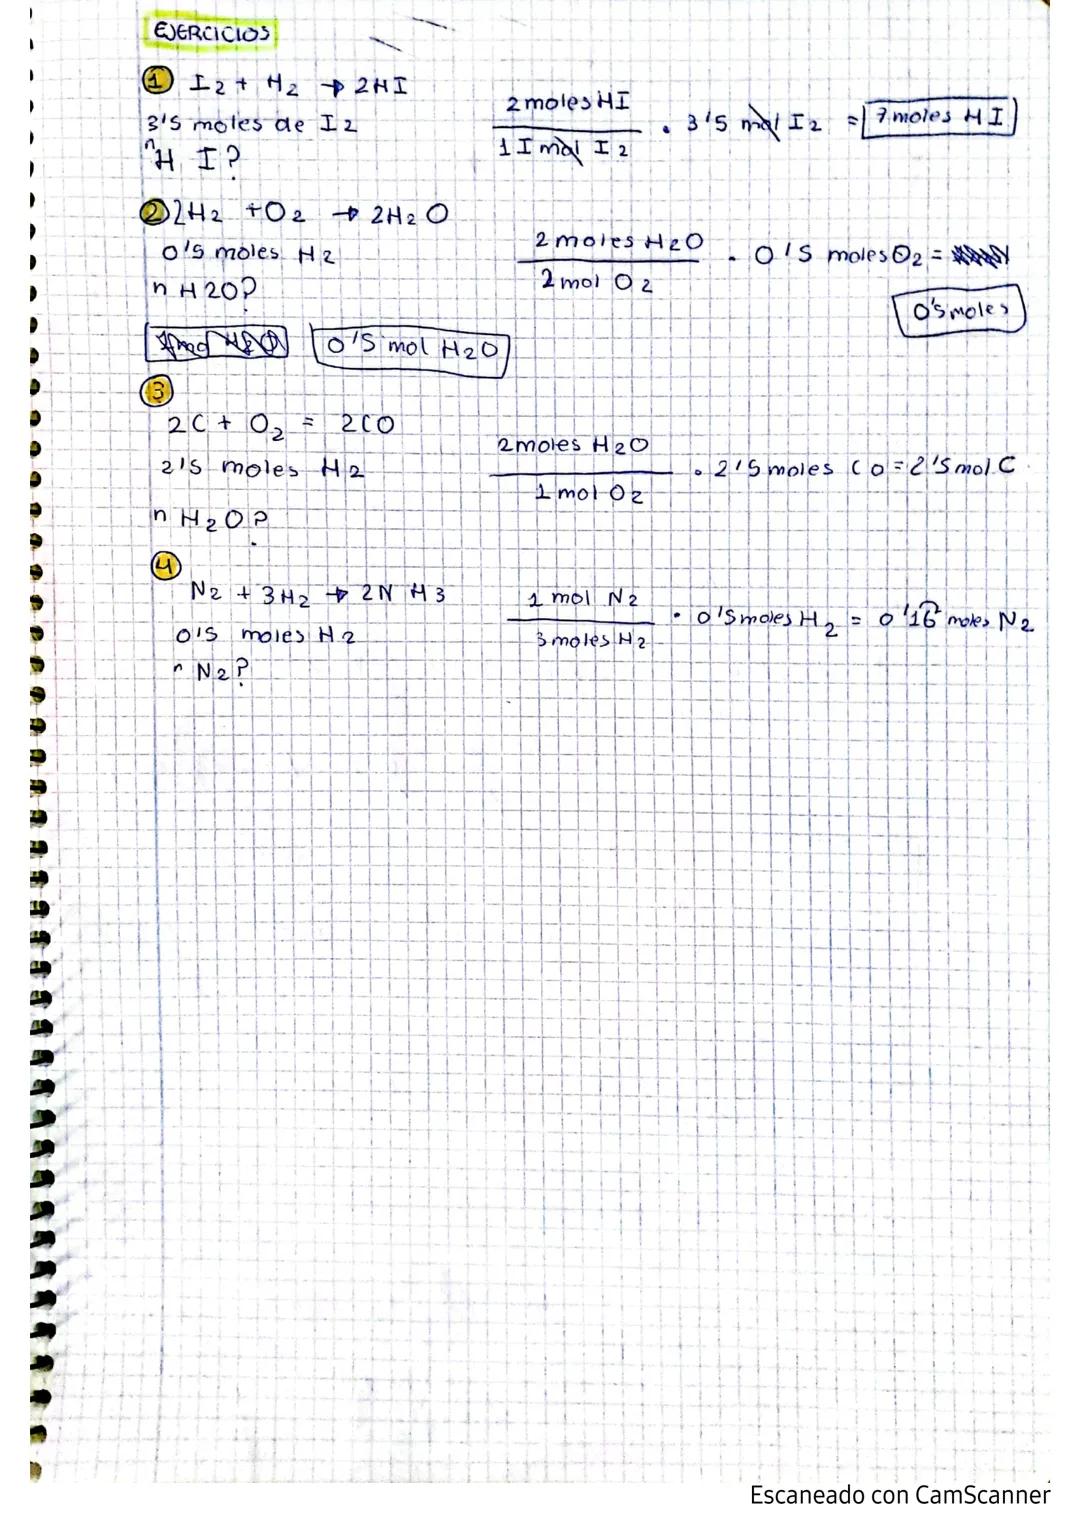 EJERCICIOS
① I2 + H2 → 2HI
3'5 moles de I2
n H I?
2 moles HI / 1 I mol I2 · 3'5 mol I2 = 7 moles HI
② 2H2 + O2 → 2H2O
0'5 moles H2
n H2O?
2 moles H2O / 2 mol O2 · 0'5 moles O2 =
0'5 moles
0'5 mol H2O
③
2C + O2 = 2CO
2'5 moles H2
n H2O?
2 moles H2O / 1 mol O2 · 2'5 moles CO = 2'5 mol C
④
N2 + 3H2 → 2NH3
0'5 moles H2
n N2?
1 mol N2 / 3 moles H2 · 0'5 moles H2 = 0'16 moles N2
Escaneado con CamScanner